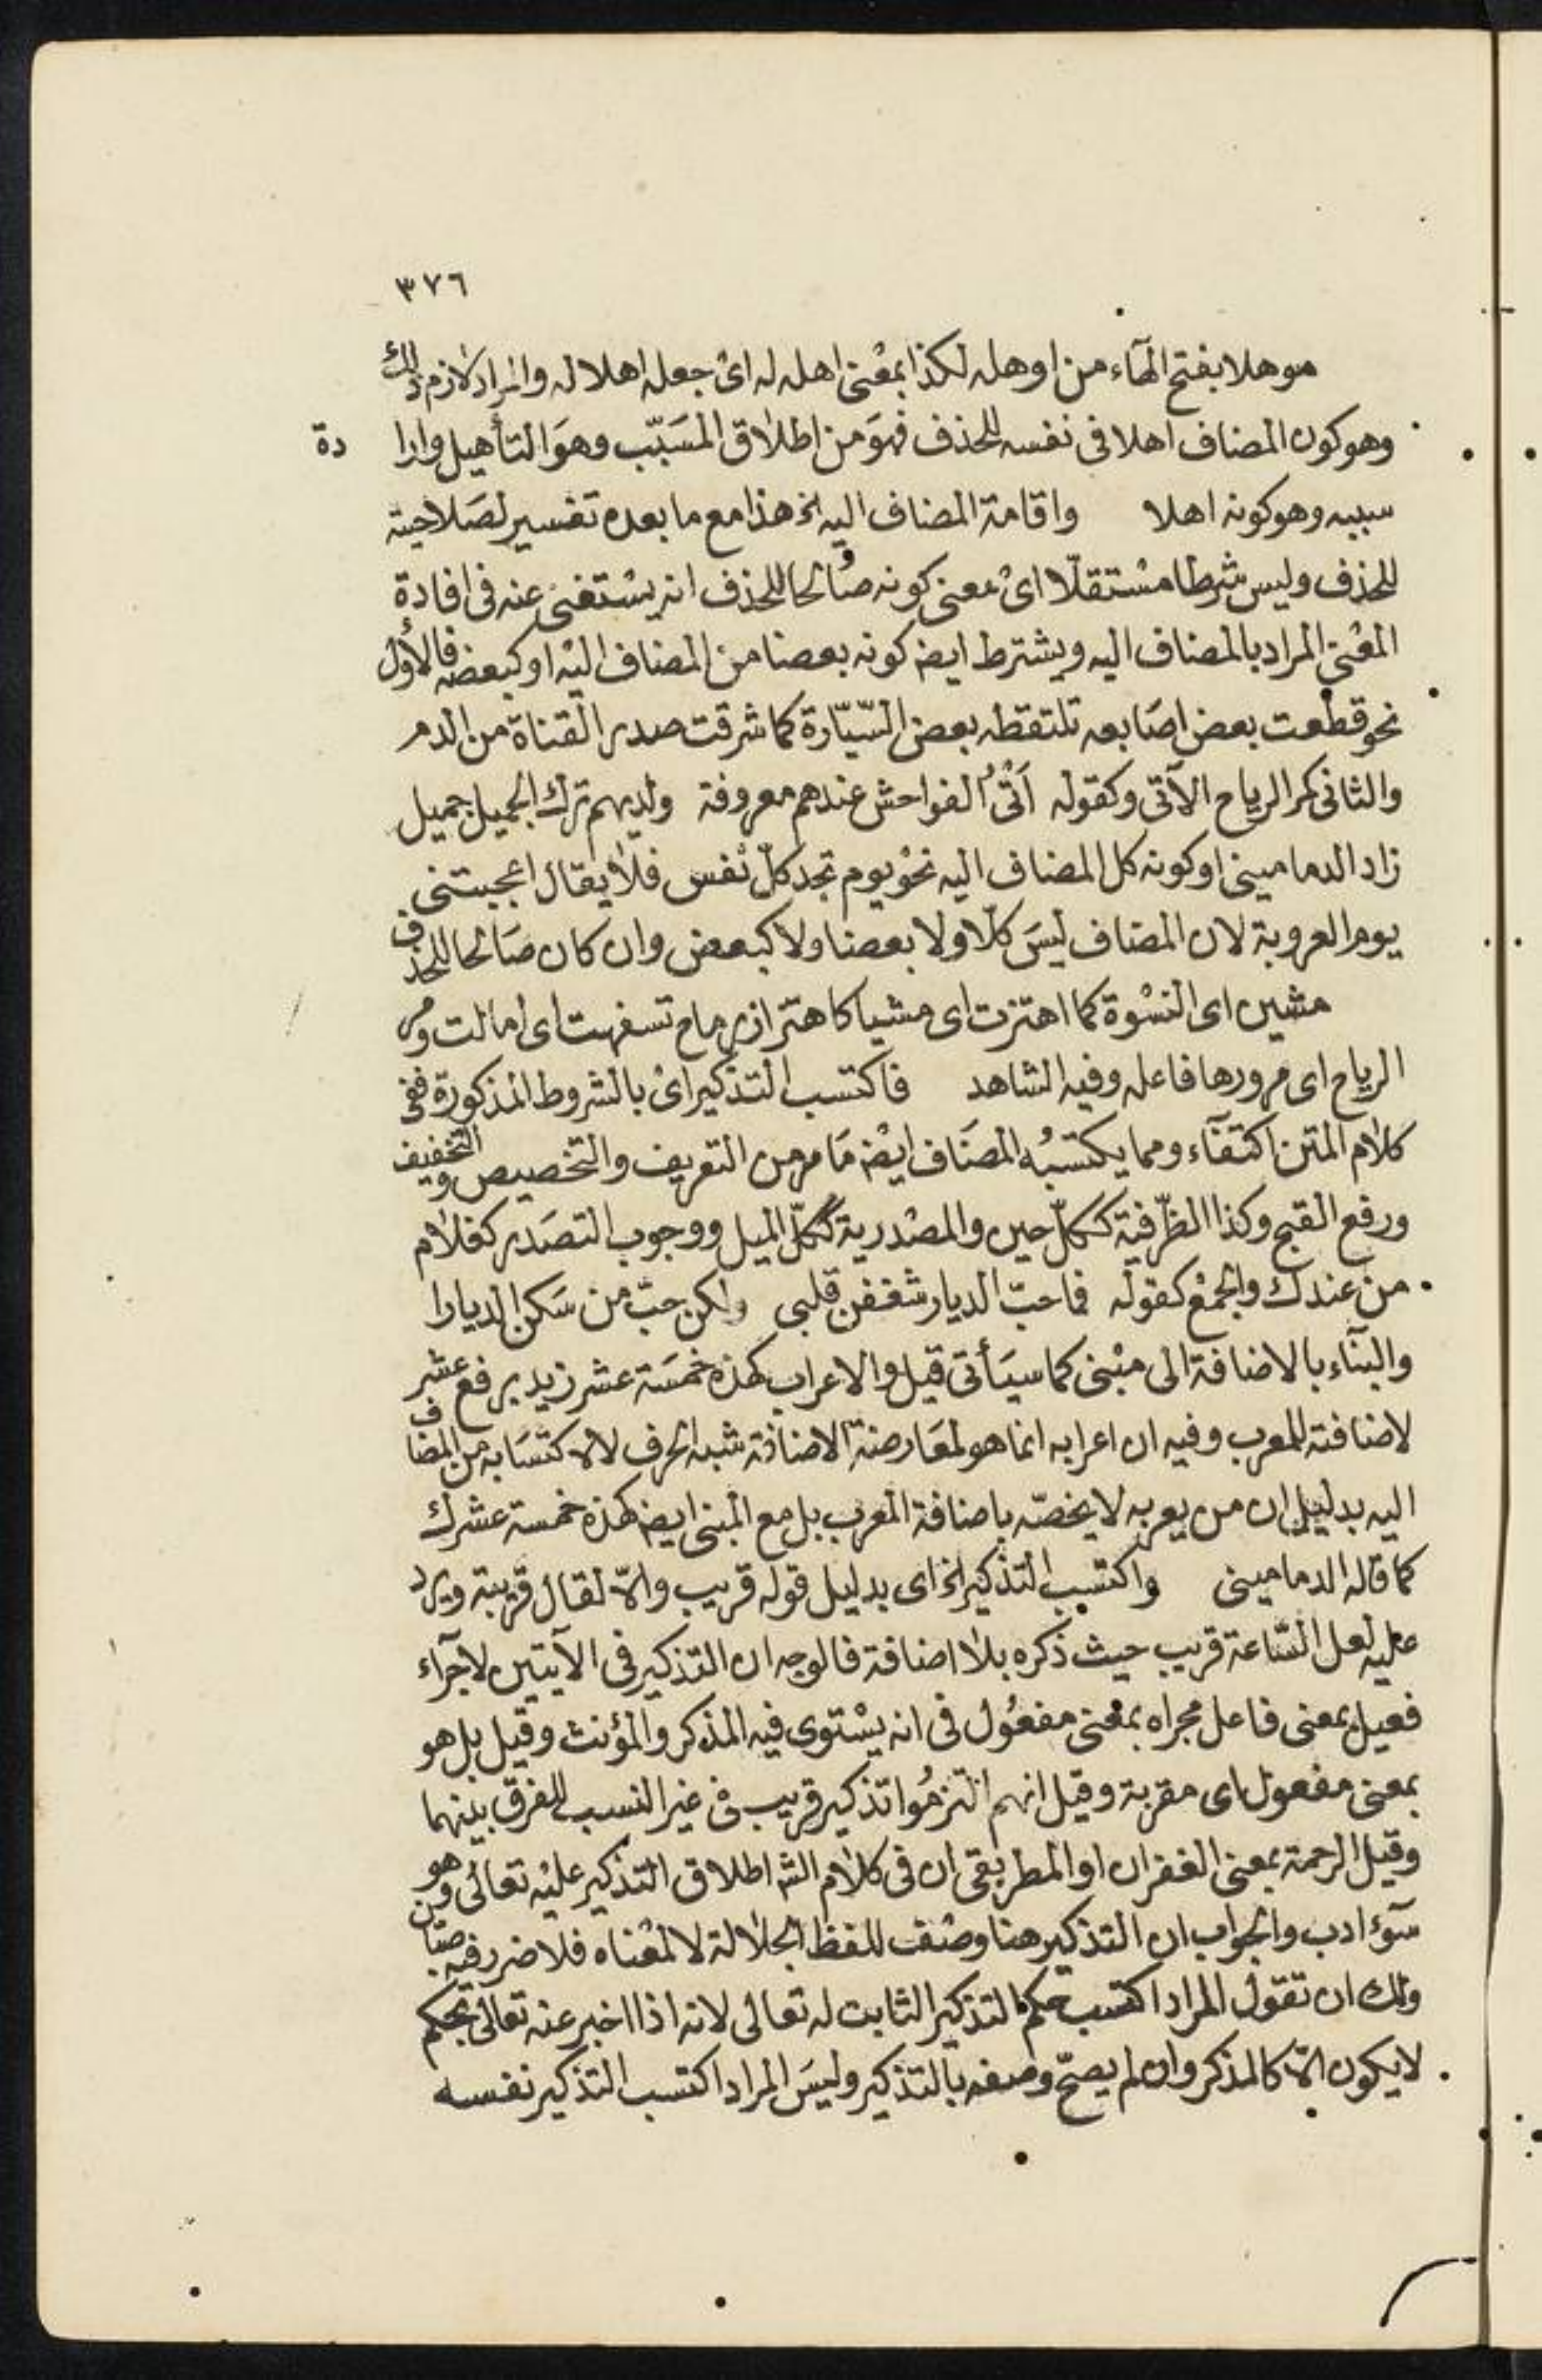 ٣٧٦
موهلا بفتح الهآء من اوهله لكذا بمعْنى اهله له اىْ جعله اهلا له والمراد لازم ذلك
وهو كون المضاف اهلا فى نفسه للحذف فهوَ من اطلاق المسَبّب وهوَ التأهيل وارا دة
سببه وهو كونه اهلا واقامة المضاف اليه الخ هذا مع ما بعده تفسير لصَلاحيته
للحذف وليس شرطا مسْتقلّا اىْ معنى كونه صَالحا للحذف انه يسْتغنى عنه فى افادة
المعْنى المراد بالمضاف اليه ويشترط ايضه كونه بعضا من المضاف اليْه او كبعضه فالأول
نحو قطعت بعض اصَابعه تلتقطه بعض السّيّارة كما شرقت صدر القناة من الدم
والثانى كمر الرياح الآتى وكقوله اَتْىُ الفواحش عندهم معروفة ولديهم ترك الجميل جميل
زاد الدمامينى او كونه كل المضاف اليه نحوْ يوم تجد كلّ نفس فلا يقال اعجبتنى
يوم العروبة لان المضاف ليسَ كلّا ولا بعضا ولا كبعض وان كان صَالحا للحذف
مشين اى النسْوة كما اهتزت اى مشيا كاهتزاز رماح تسفهت اى امالت ومر
الرياح اى مرورها فاعله وفيه الشاهد فاكتسب التذكير اىْ بالشروط المذكورة ففى
كلام المتن اكتفآء ومما يكتسبُه المضَاف ايضْه مَا مر من التعريف والتخصيص والتخفيف
ورفع القبح وكذا الظّرفية ككلّ حين والمصْدرية ككلّ الميل ووجوب التصَدر كغلام
من عندك والجمْع كقوله فما حبّ الديار شغفن قلبى ولكن حبّ من سَكن الديارا
والبنآء بالاضافة الى مبْنى كما سيَأتى قيل والاعراب كهذه خمسَة عشر زيد برفع عشر
لاضافته للمعرب وفيه ان اعرابه انما هو لمعَارضة الاضافة شبه الحرف لا لاكتسَابه من المضاف
اليه بدليل ان من يعربه لا يخصّه باضافة المعرب بل مع المبنى ايضه كهذه خمسة عشرك
كما قاله الدمامينى واكتسب التذكير الخ اى بدليل قوله قريب والّا لقال قريبة ويرد
عليه لعل السّاعة قريب حيث ذكره بلا اضافة فالوجه ان التذكير فى الآيتين لاجرآء
فعيل بمعنى فاعل مجراه بمعنى مفعُول فى انه يسْتوى فيه المذكر والمؤنث وقيل بل هو
بمعنى مفعول اى مقربة وقيل انهم التزمُوا تذكير قريب فى غير النسب للفرق بينهما
وقيل الرحمة بمعنى الغفران او المطر بقى ان فى كلام الشه اطلاق التذكير عليْه تعالى وهو
سوٓء ادب والجواب ان التذكير هنا وصْف للفظ الجلالة لا لمعْناه فلا ضرر فيه صبان
ولك ان تقول المراد اكتسب حكم التذكير الثابت له تعالى لانه اذا اخبر عنه تعالى بحكم
لا يكون الّا كالمذكر وان لم يصحّ وصفه بالتذكير وليسَ المراد اكتسب التذكير نفسه